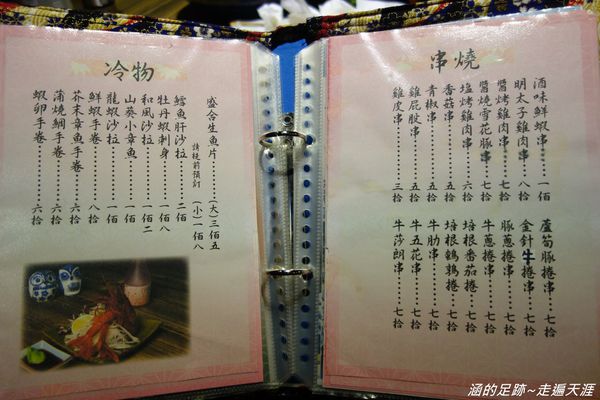 冷物
盛合生魚片……(大)三佰五
請提前預訂 (小)一佰八
鱈魚肝沙拉……二佰
牡丹蝦刺身……一佰八
和風沙拉……一佰二
山葵小章魚……一佰
龍蝦沙拉……一佰
鮮蝦手卷……八拾
芥末章魚手卷……六拾
蒲燒鯛手卷……六拾
蝦卵手卷……六拾
串燒
酒味鮮蝦串……一佰
明太子雞肉串……八拾
醬烤雞肉串……七拾
醬燒雪花豚串……七拾
塩烤雞肉串……六拾
香菇串……五拾
青椒串……五拾
雞屁股串……五拾
雞皮串……三拾
蘆筍豚捲串……七拾
金針牛捲串……七拾
豚蔥捲串……七拾
牛蔥捲串……七拾
培根番茄捲……七拾
培根鵪鶉捲……七拾
牛肋串……七拾
牛五花串……七拾
牛莎朗串……七拾
涵的足跡~走遍天涯